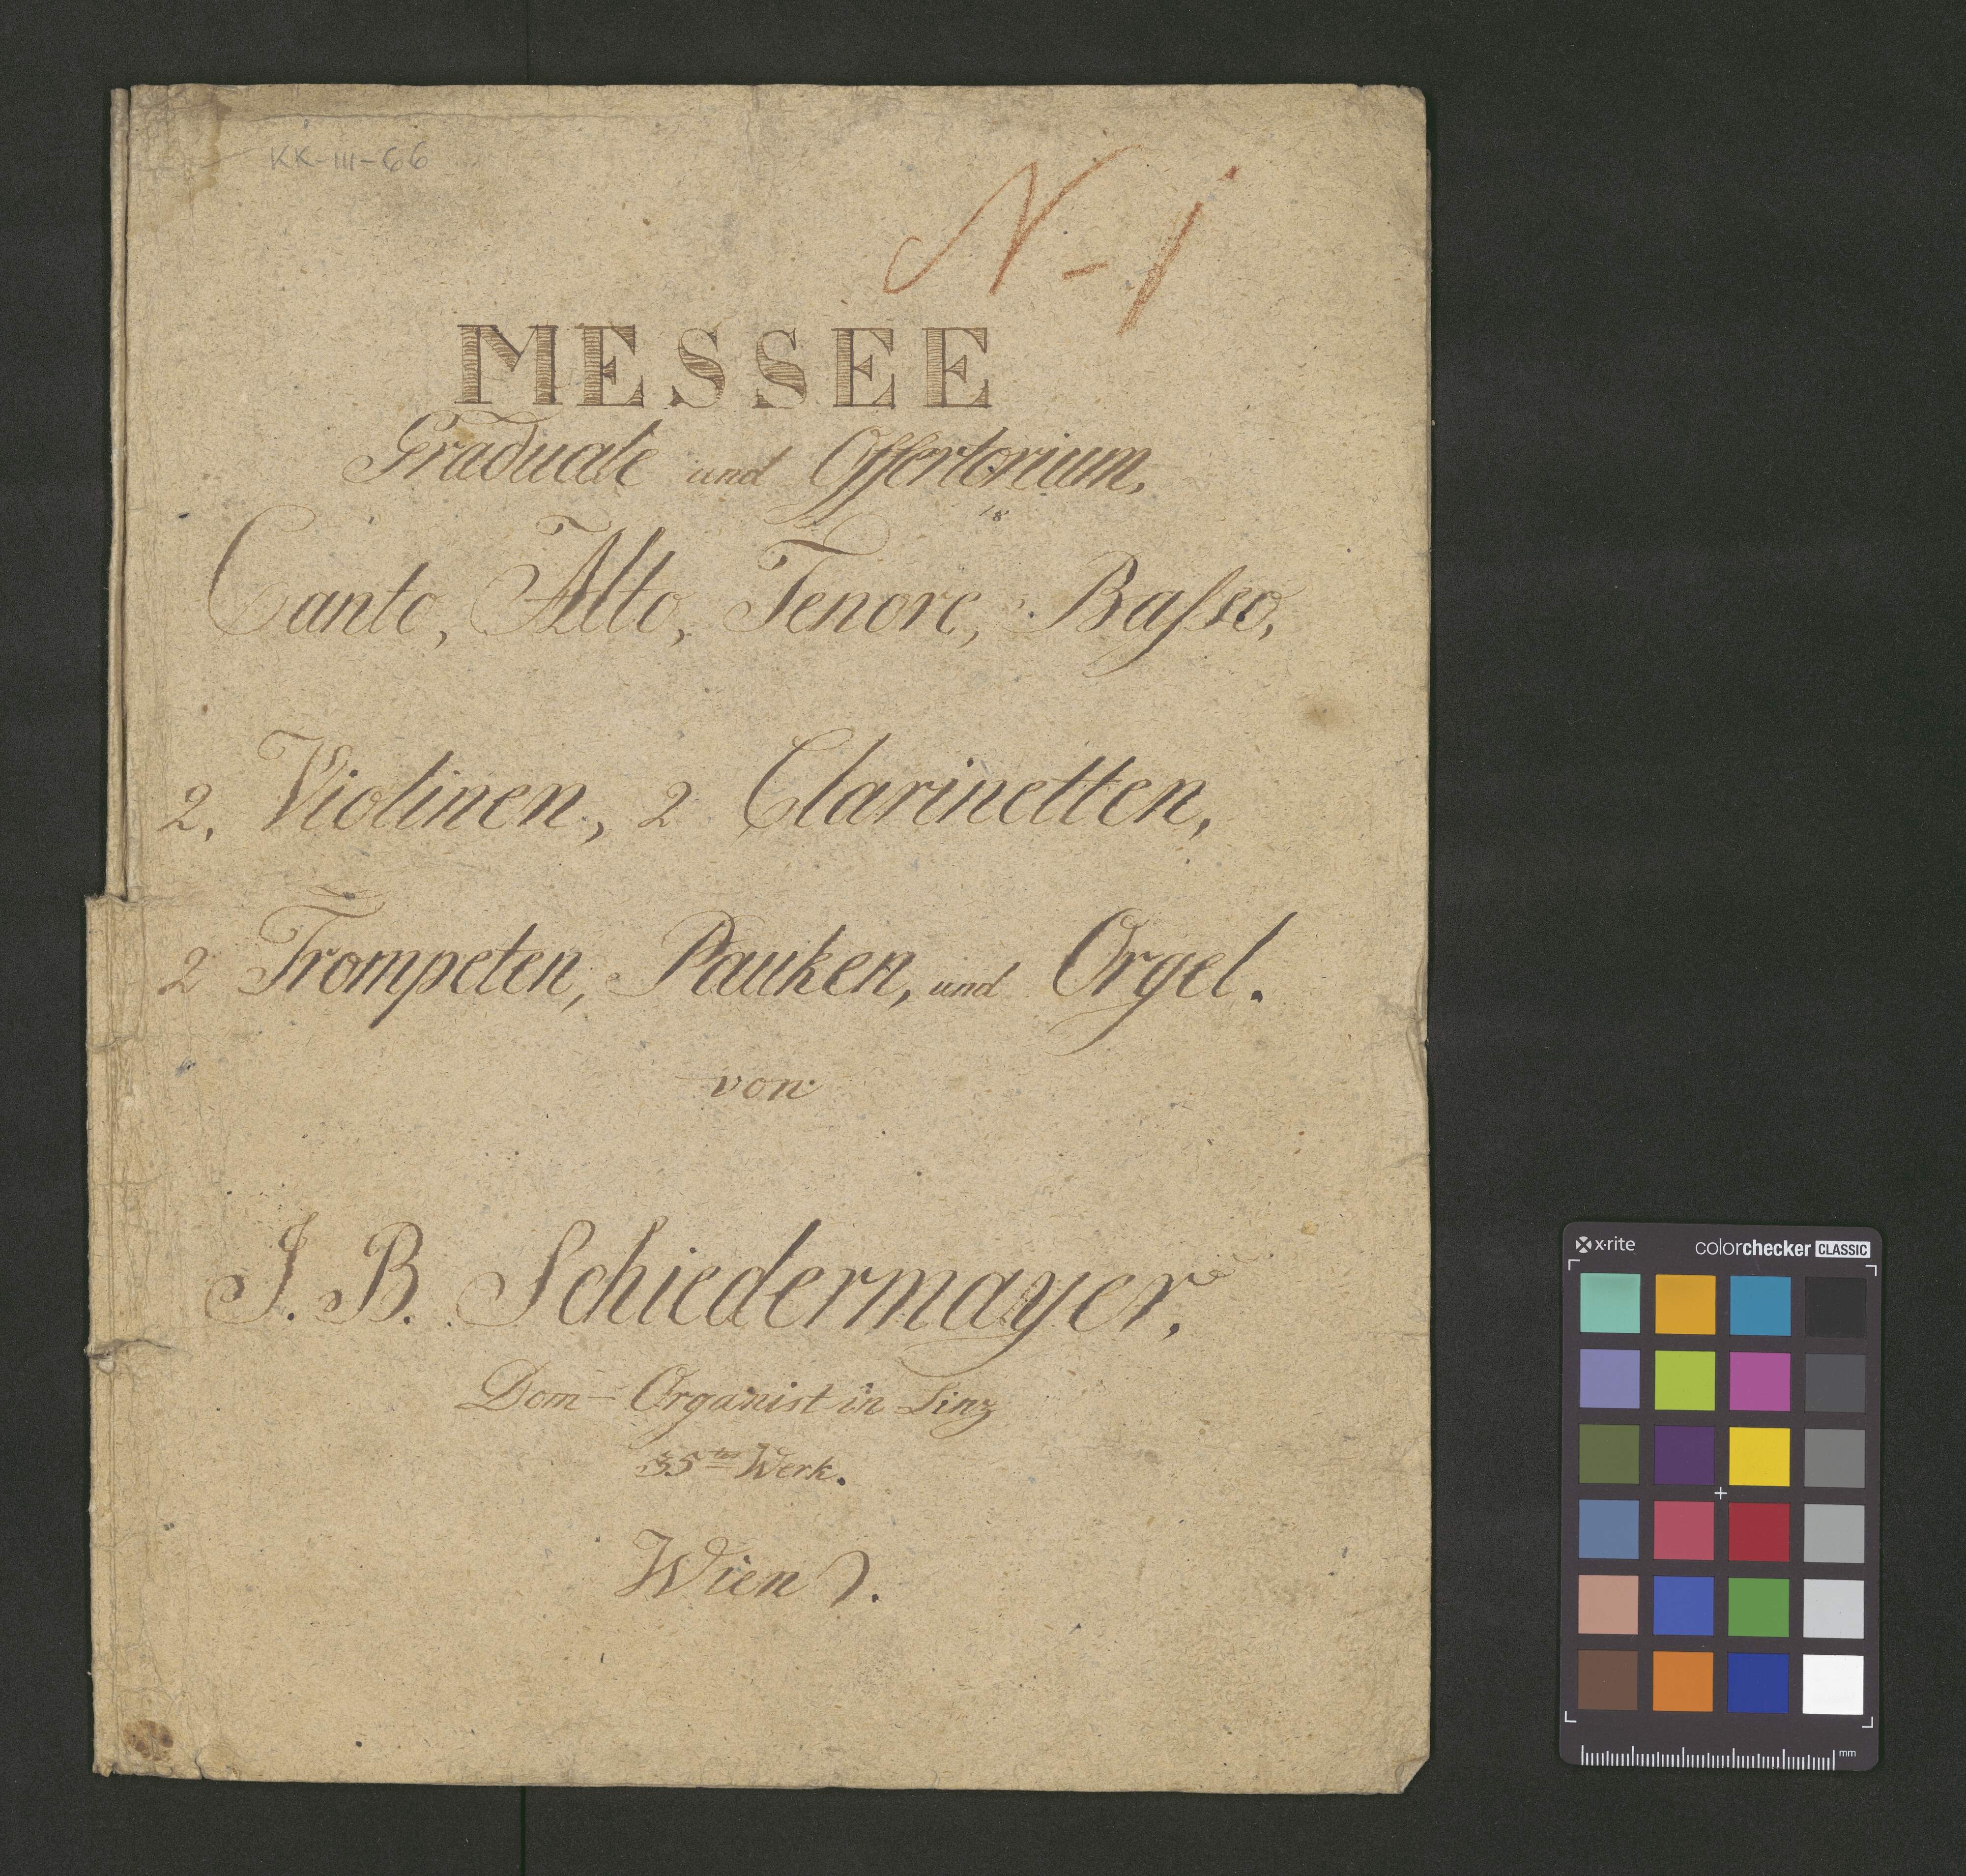 KK-III-66
N-1
MESSEE
Graduale und Offertorium,
Canto, Alto, Tenore, Baſso,
2, Violinen, 2 Clarinetten,
2 Trompeten, Pauken, und Orgel.
von
J. B. Schiedermayer.
Dom- Organist in Linz
35tes Werk.
Wien
x·rite colorchecker CLASSIC
mm